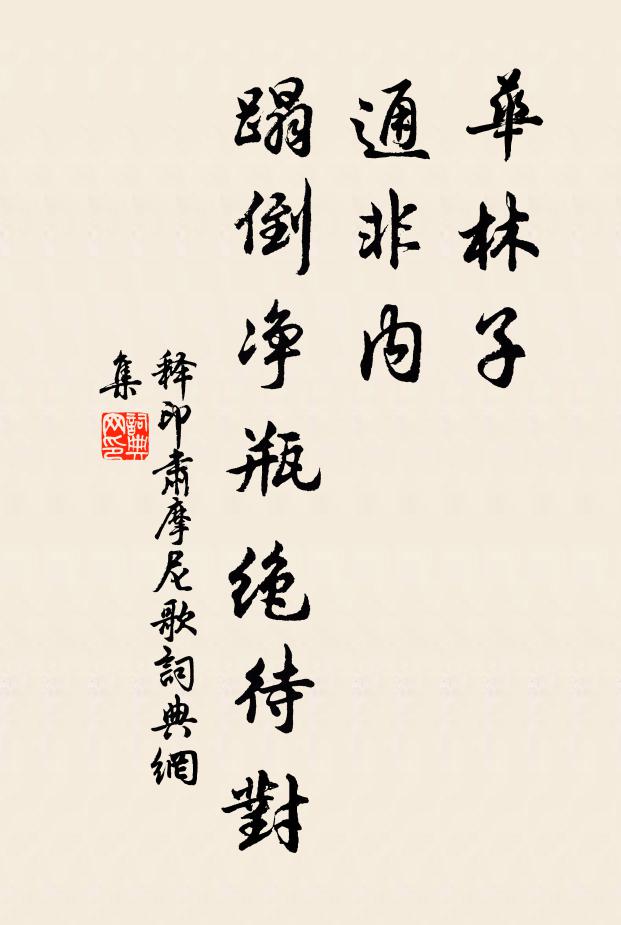 華林子
通非内
蹋倒净瓶绝待對
释印肅摩尼歌詞典網
集
詞典
网印